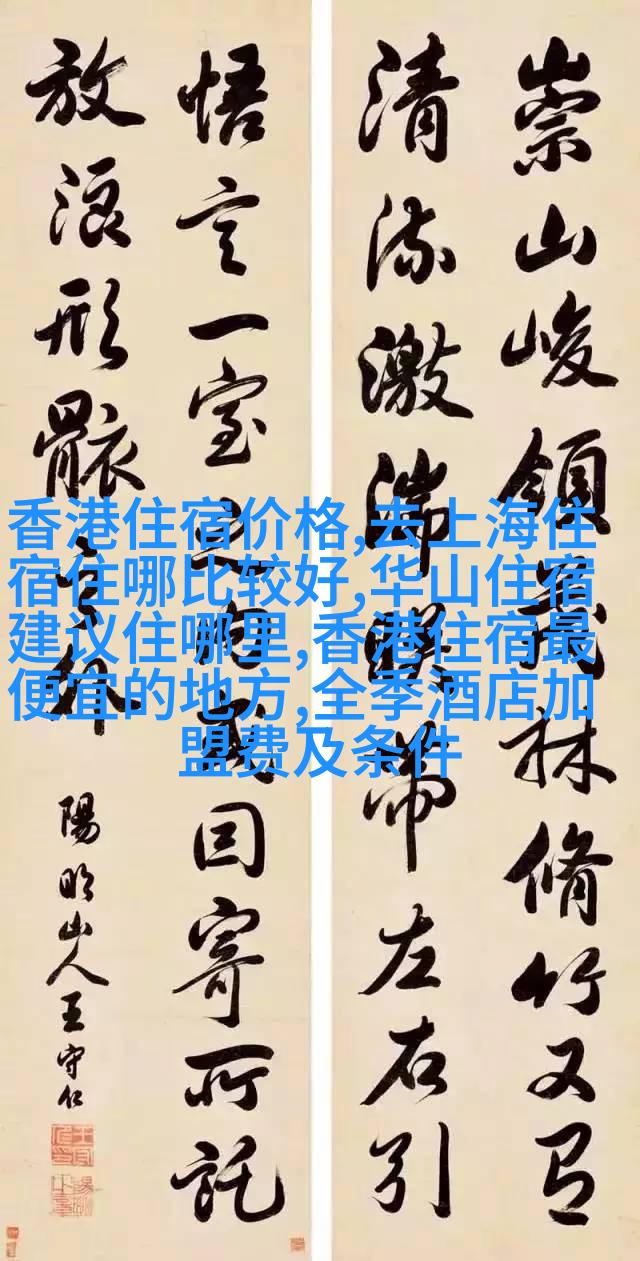 崇山峻領茂林脩竹又有
清流激湍暎帶左右引
悟言一室之内或因寄所託
放浪形骸之外
陽明山人王守仁
香港住宿价格,去上海住
宿住哪比较好,华山住宿
建议住哪里,香港住宿最
便宜的地方,全季酒店加
盟费及条件